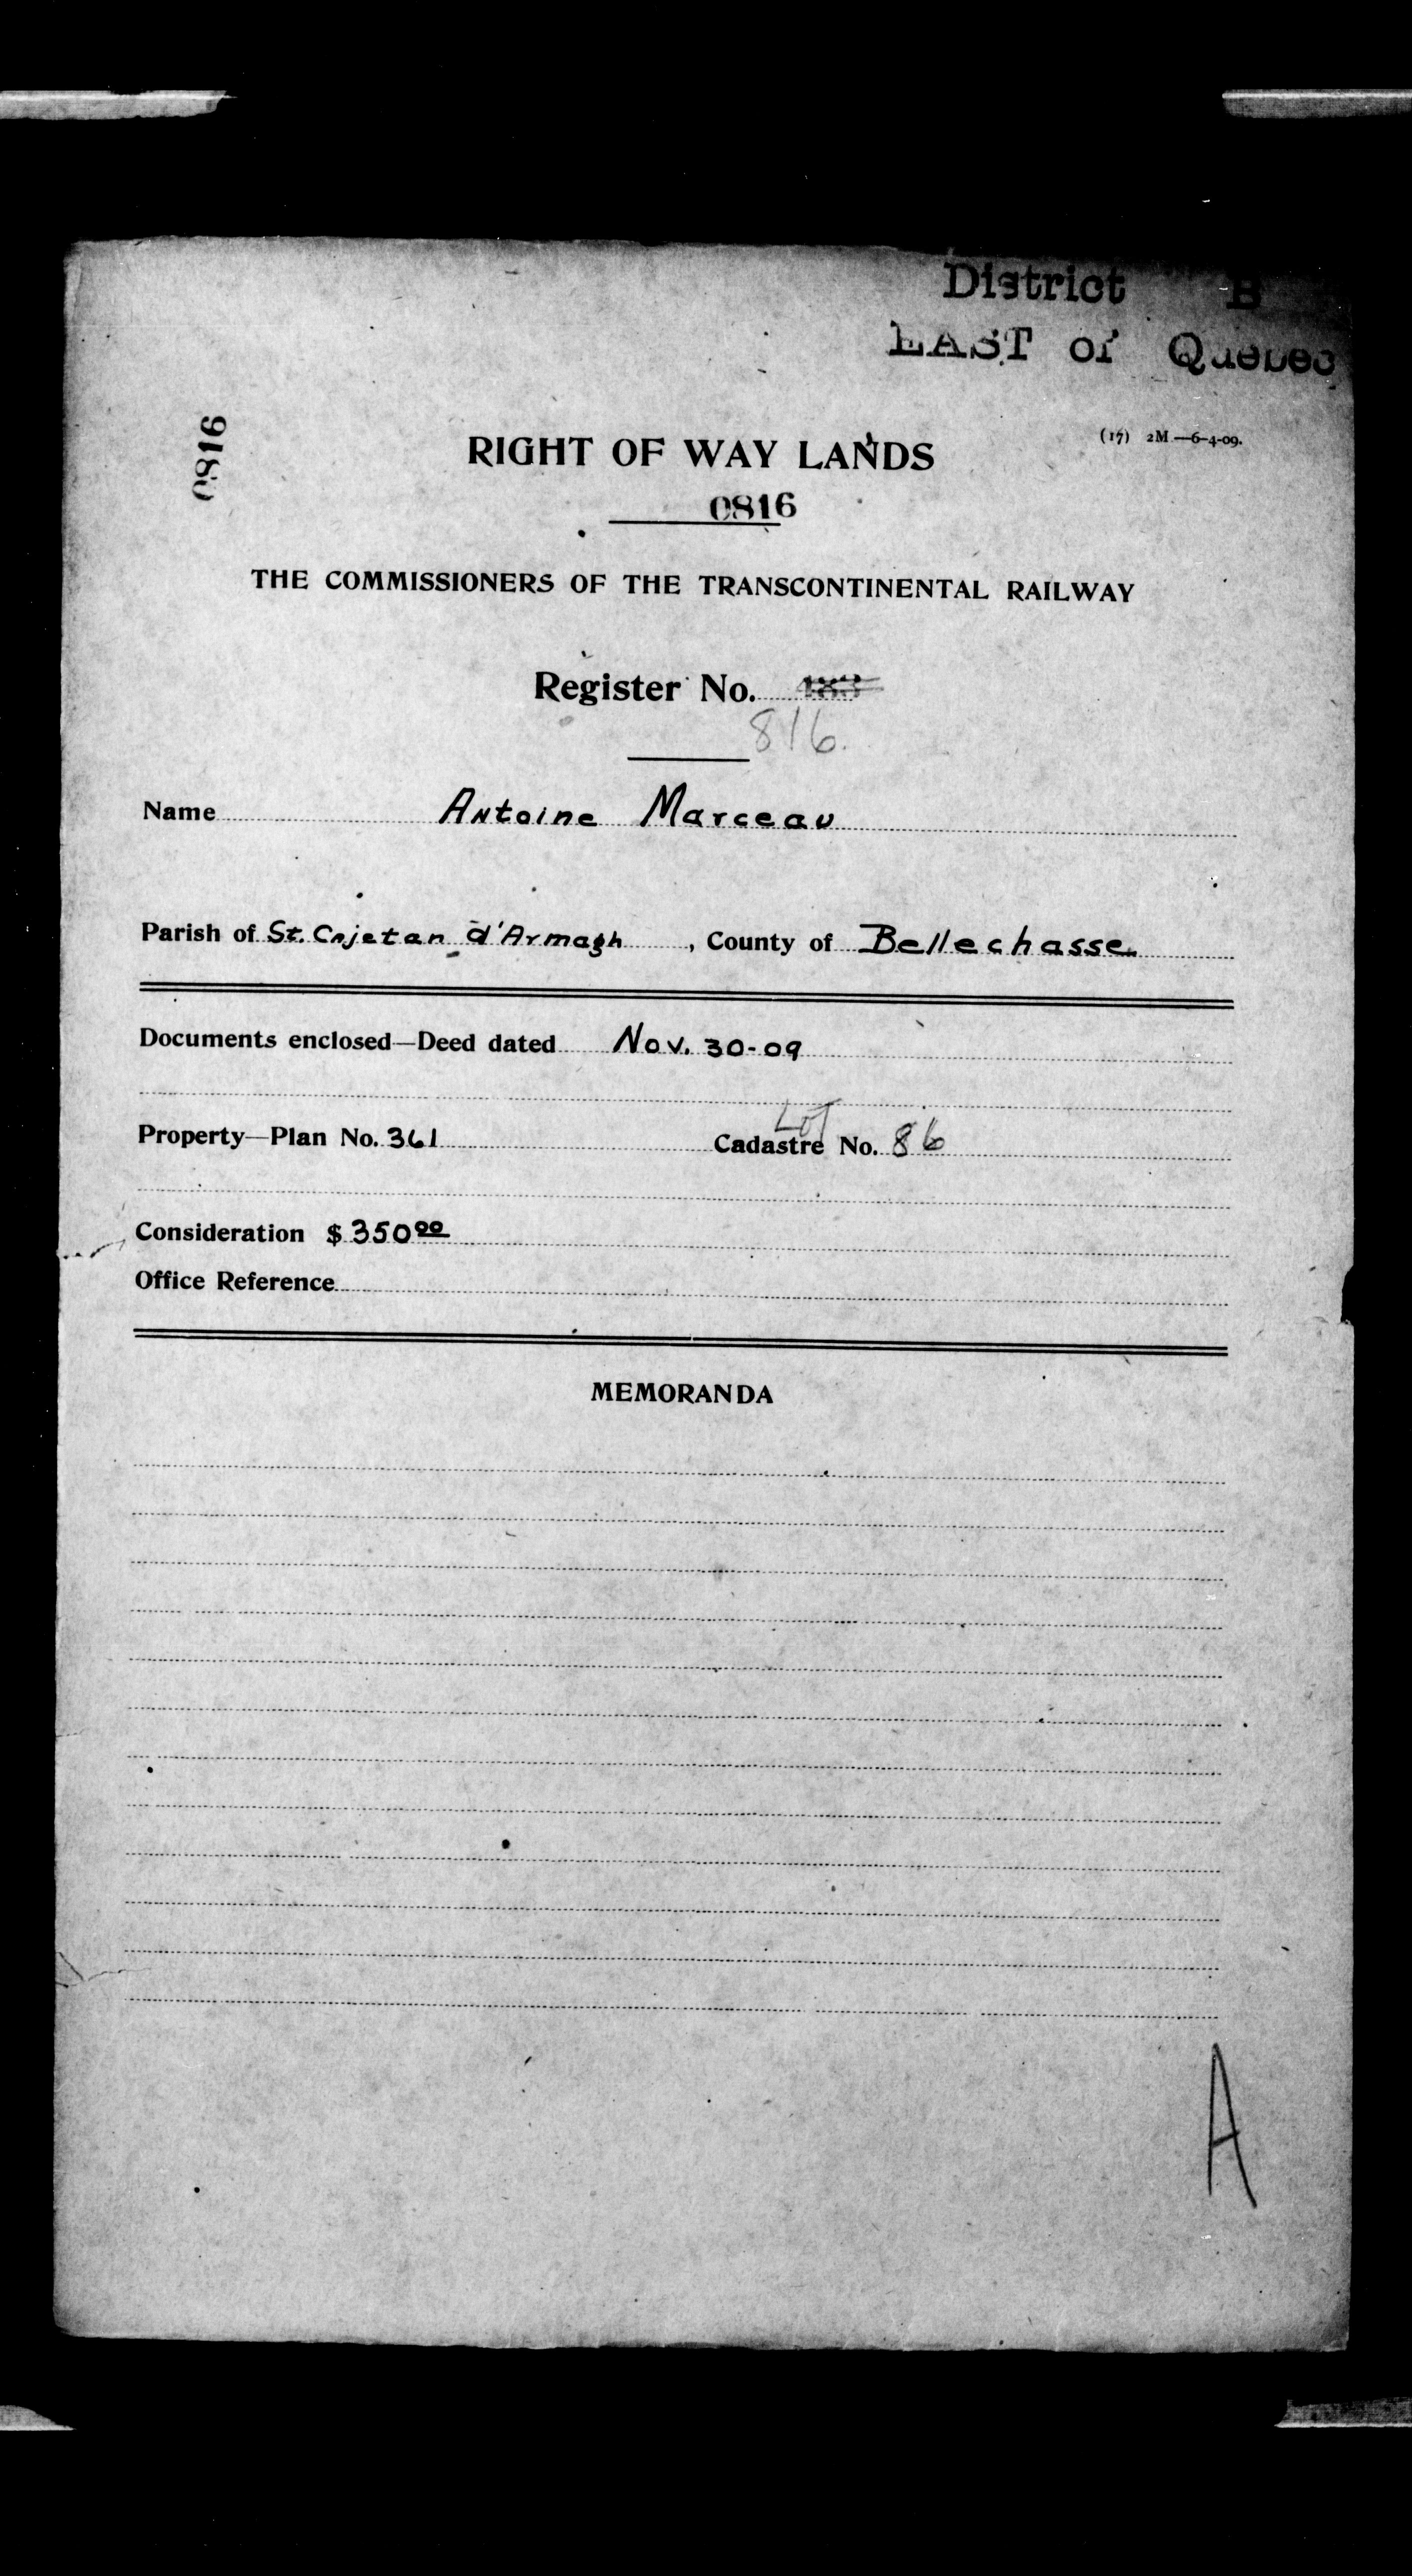 District B
EAST of Quebec
0816
(17) 2M—6-4-09.
RIGHT OF WAY LANDS
0816
THE COMMISSIONERS OF THE TRANSCONTINENTAL RAILWAY
Register No. 183
816.
Name Antoine Marceau
Parish of St. Cajetan d'Armagh, County of Bellechasse
Documents enclosed—Deed dated Nov. 30-09
Lot
Property—Plan No. 361 Cadastre No. 86
Consideration $ 350 00
Office Reference
MEMORANDA
A